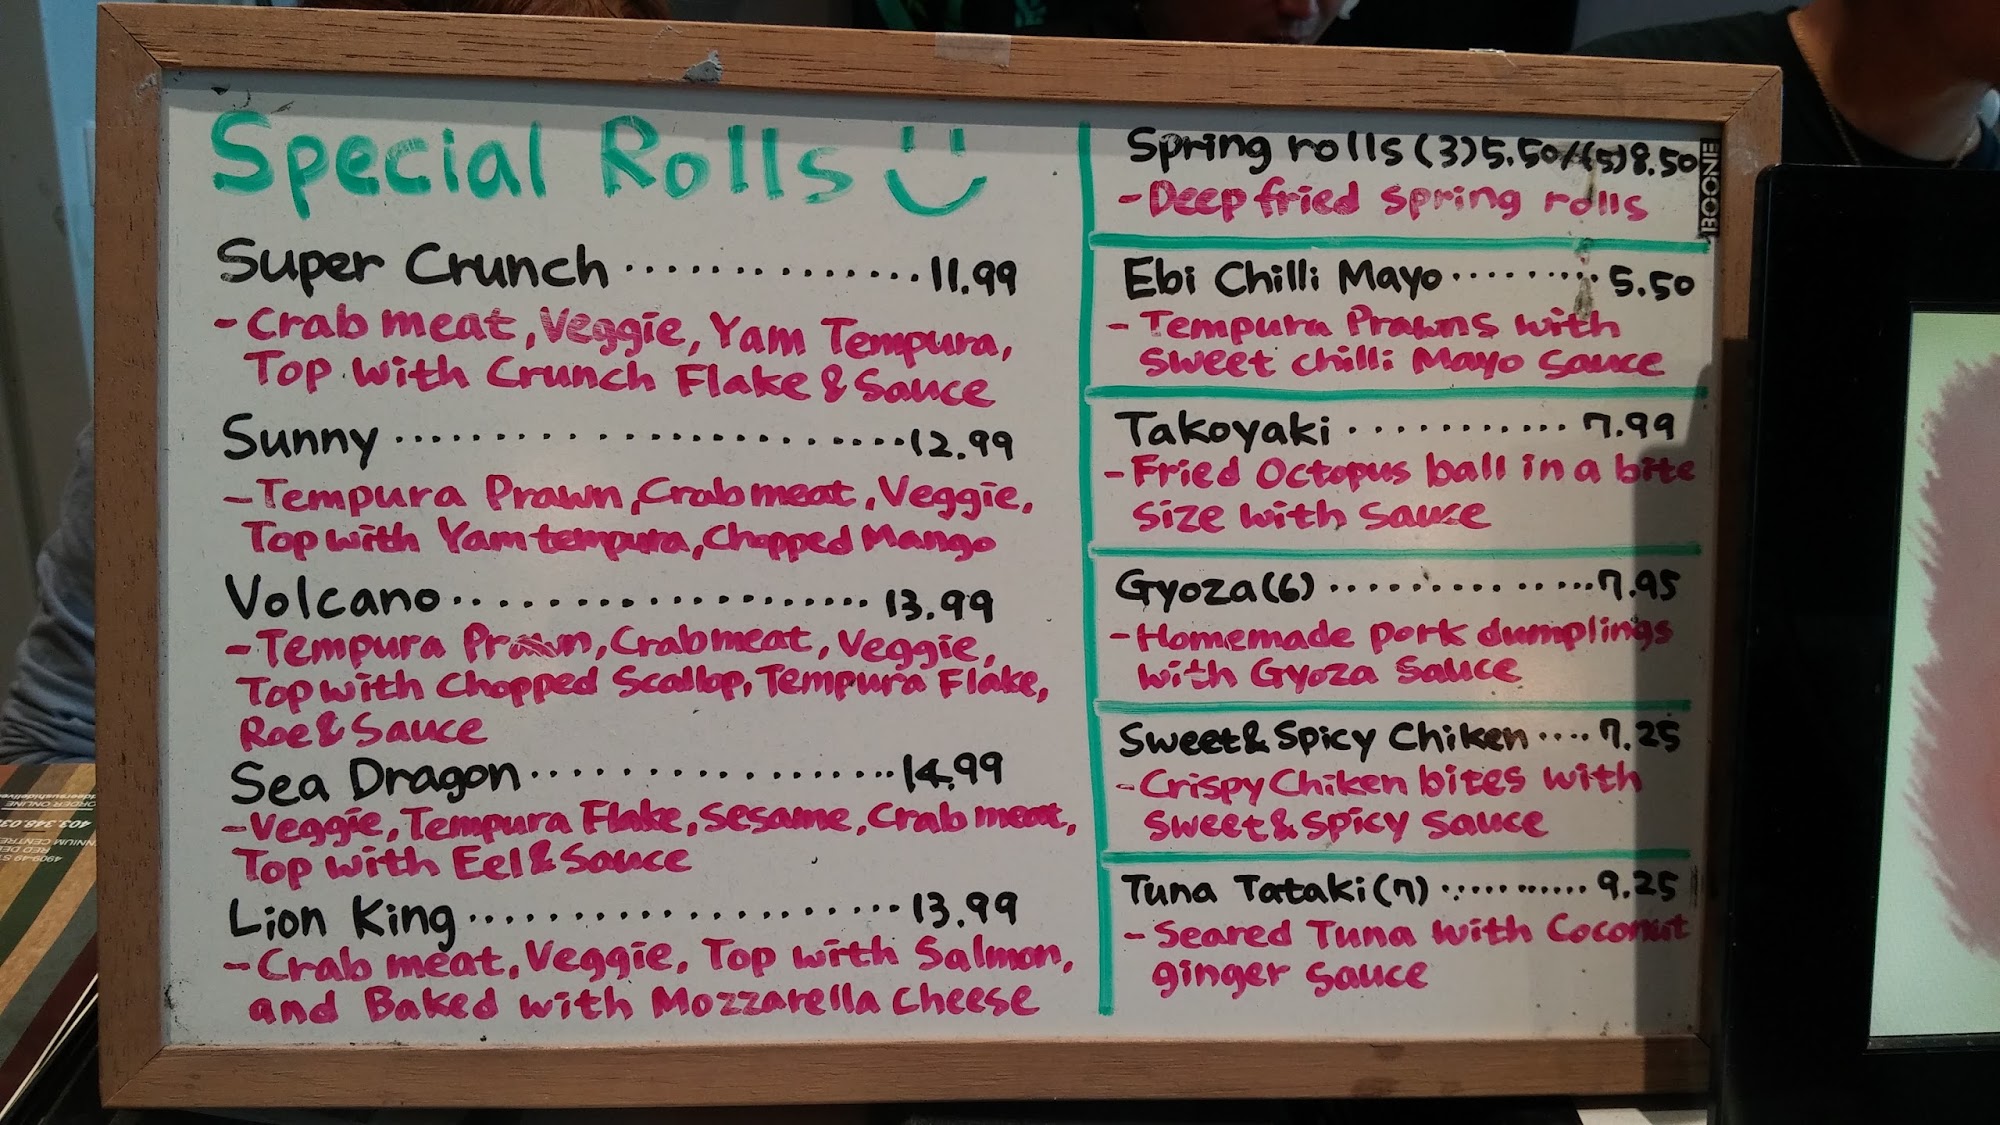 Special Rolls
Super Crunch ............... 11.99
- Crab meat, Veggie, Yam Tempura,
Top with Crunch Flake & Sauce
Sunny ........................... 12.99
- Tempura Prawn, Crab meat, Veggie,
Top with Yam tempura, Chopped Mango
Volcano .................... 13.99
- Tempura Prawn, Crab meat, Veggie,
Top with Chopped Scallop, Tempura Flake,
Roe & Sauce
Sea Dragon ................... 14.99
- Veggie, Tempura Flake, Sesame, Crab meat,
Top with Eel & Sauce
Lion King .................... 13.99
- Crab meat, Veggie, Top with Salmon,
and Baked with Mozzarella cheese
Spring rolls (3) 5.50 / (5) 8.50
- Deep fried spring rolls
Ebi Chilli Mayo ......... 5.50
- Tempura Prawns with
Sweet chilli Mayo Sauce
Takoyaki ........... 7.99
- Fried Octopus ball in a bite
size with sauce
Gyoza (6) .............. 7.95
- Homemade pork dumplings
with Gyoza Sauce
Sweet & Spicy Chiken .... 7.25
- Crispy Chiken bites with
Sweet & Spicy Sauce
Tuna Tataki (7) ........... 9.25
- Seared Tuna with Coconut
ginger sauce
BOONE
ORDER ONLINE